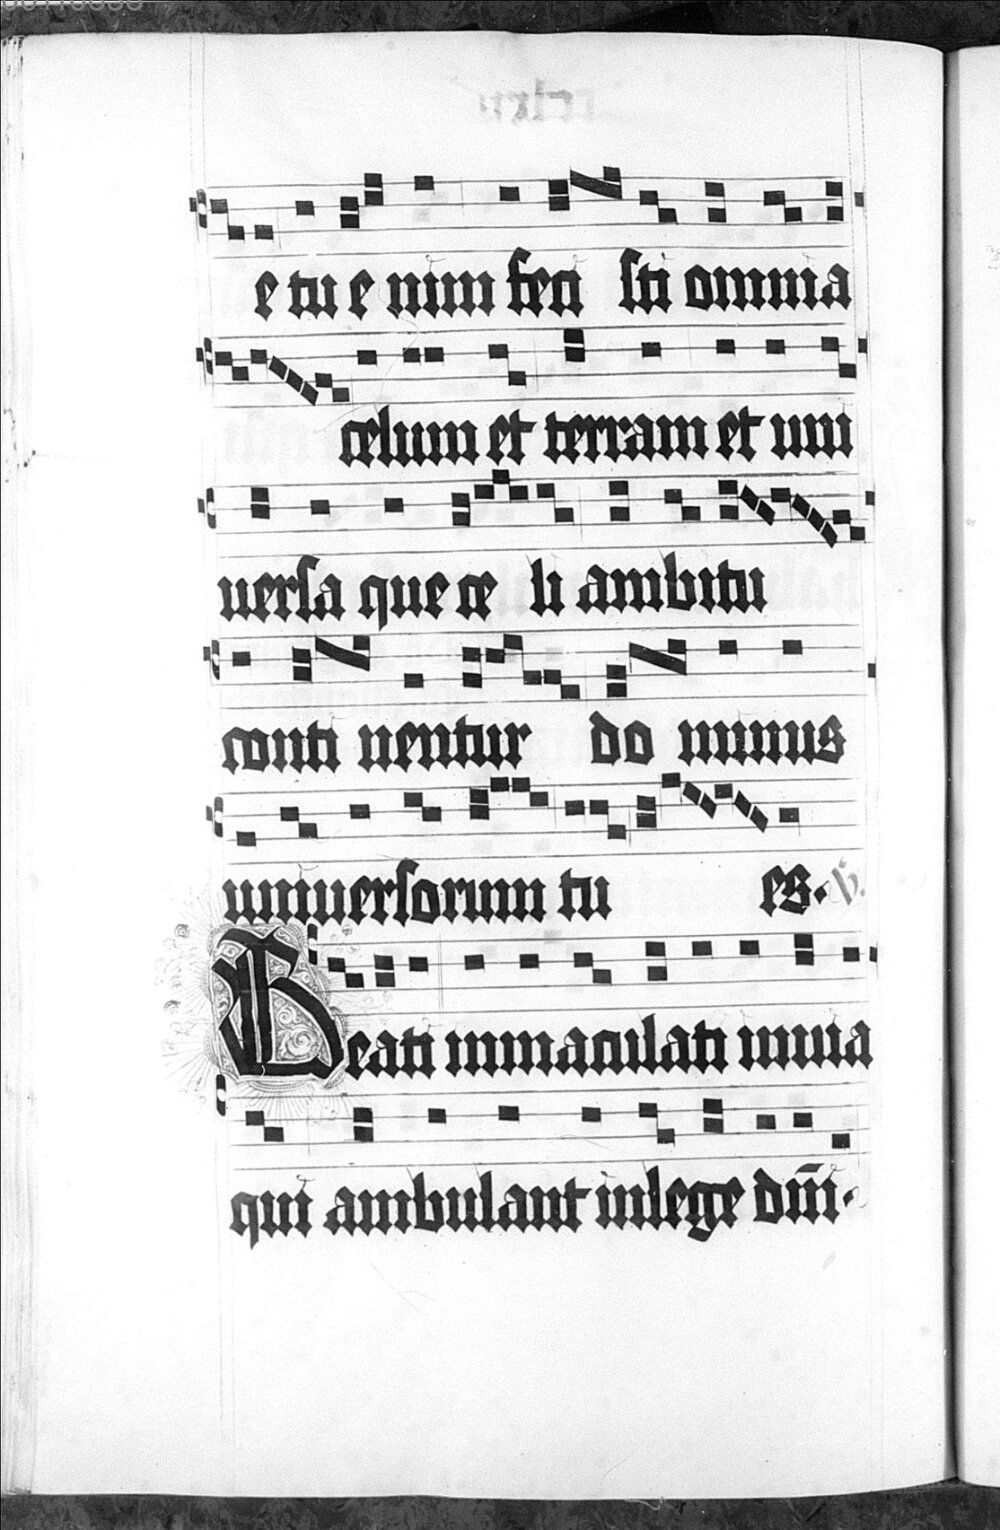 e tu e nim feci sti omnia
celum et terram et uni
uersa que ce li ambitu
conti nentur do minus
uniuersorum tu es. V.
Beati immaculati inuia
qui ambulant inlege dn̄i.